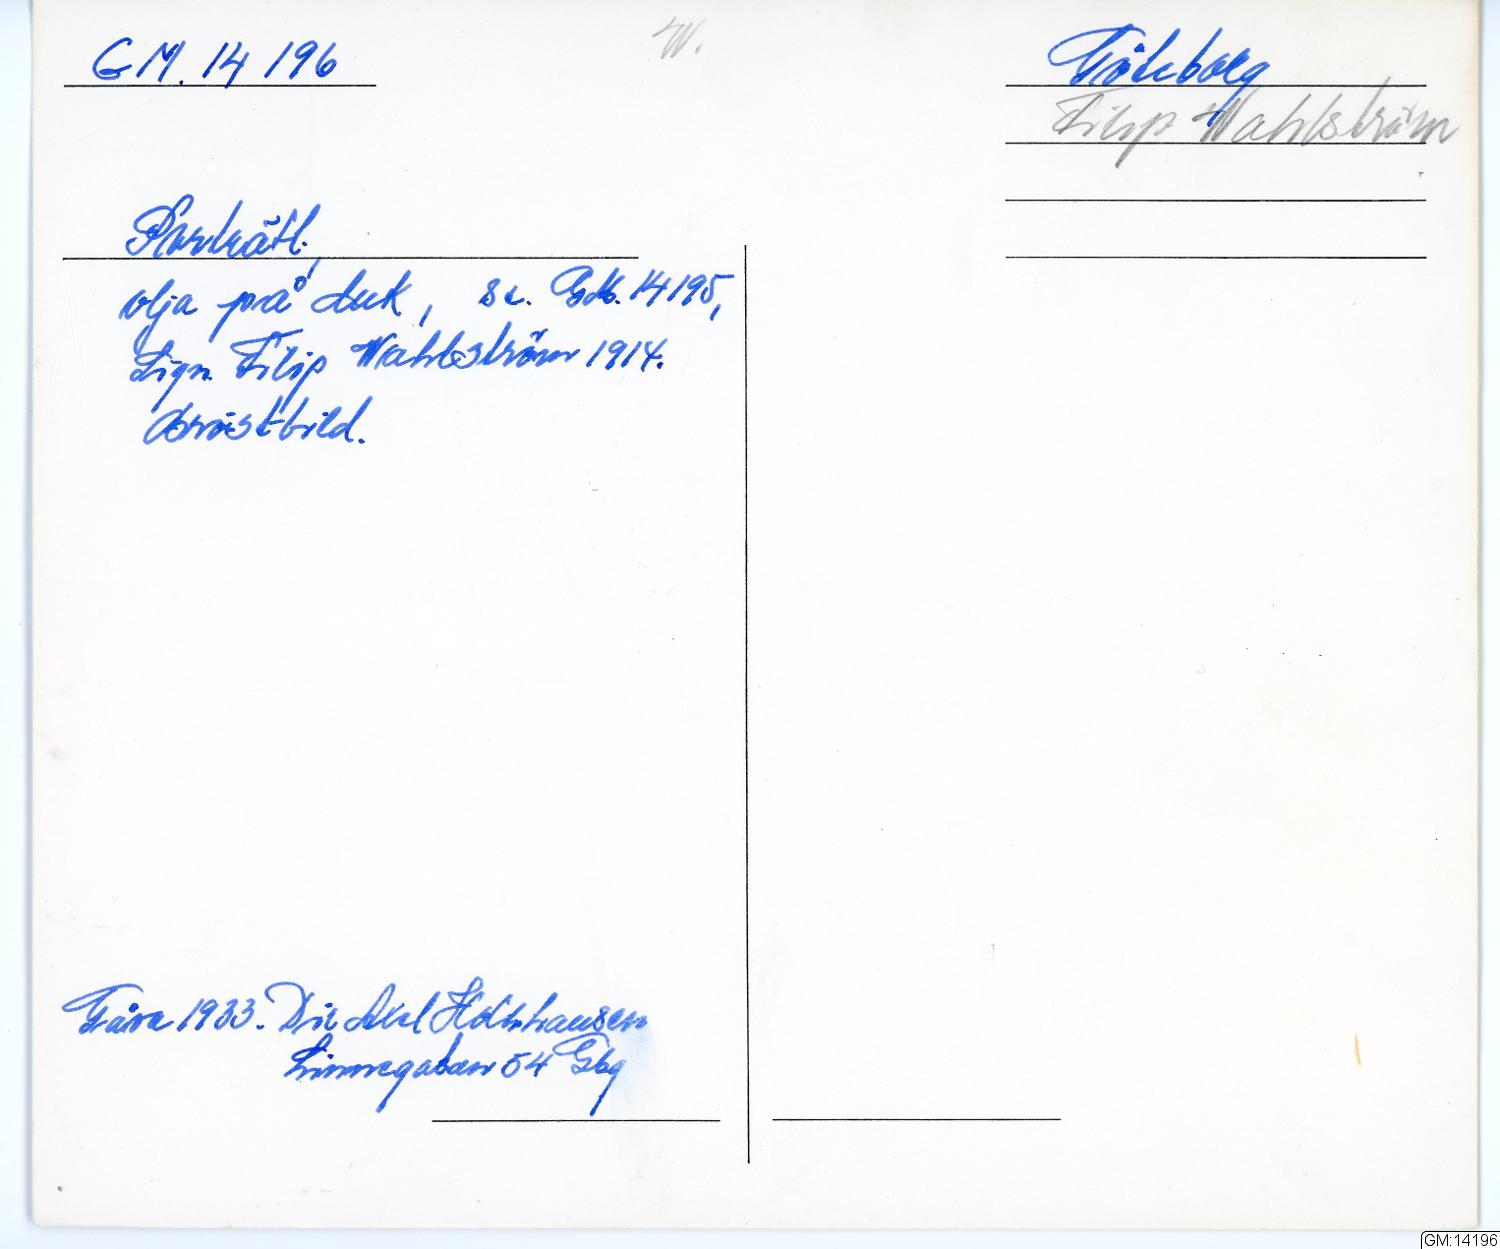 GM. 14 196
W.
Göteborg
Filip Wahlström
Porträtt,
olja på duk, se. GM. 14195,
Sign. Filip Wahlström 1914.
Bröstbild.
Gåva 1933. Dir Axel Holmhansen
Linnegatan 54 Gbg
GM:14196